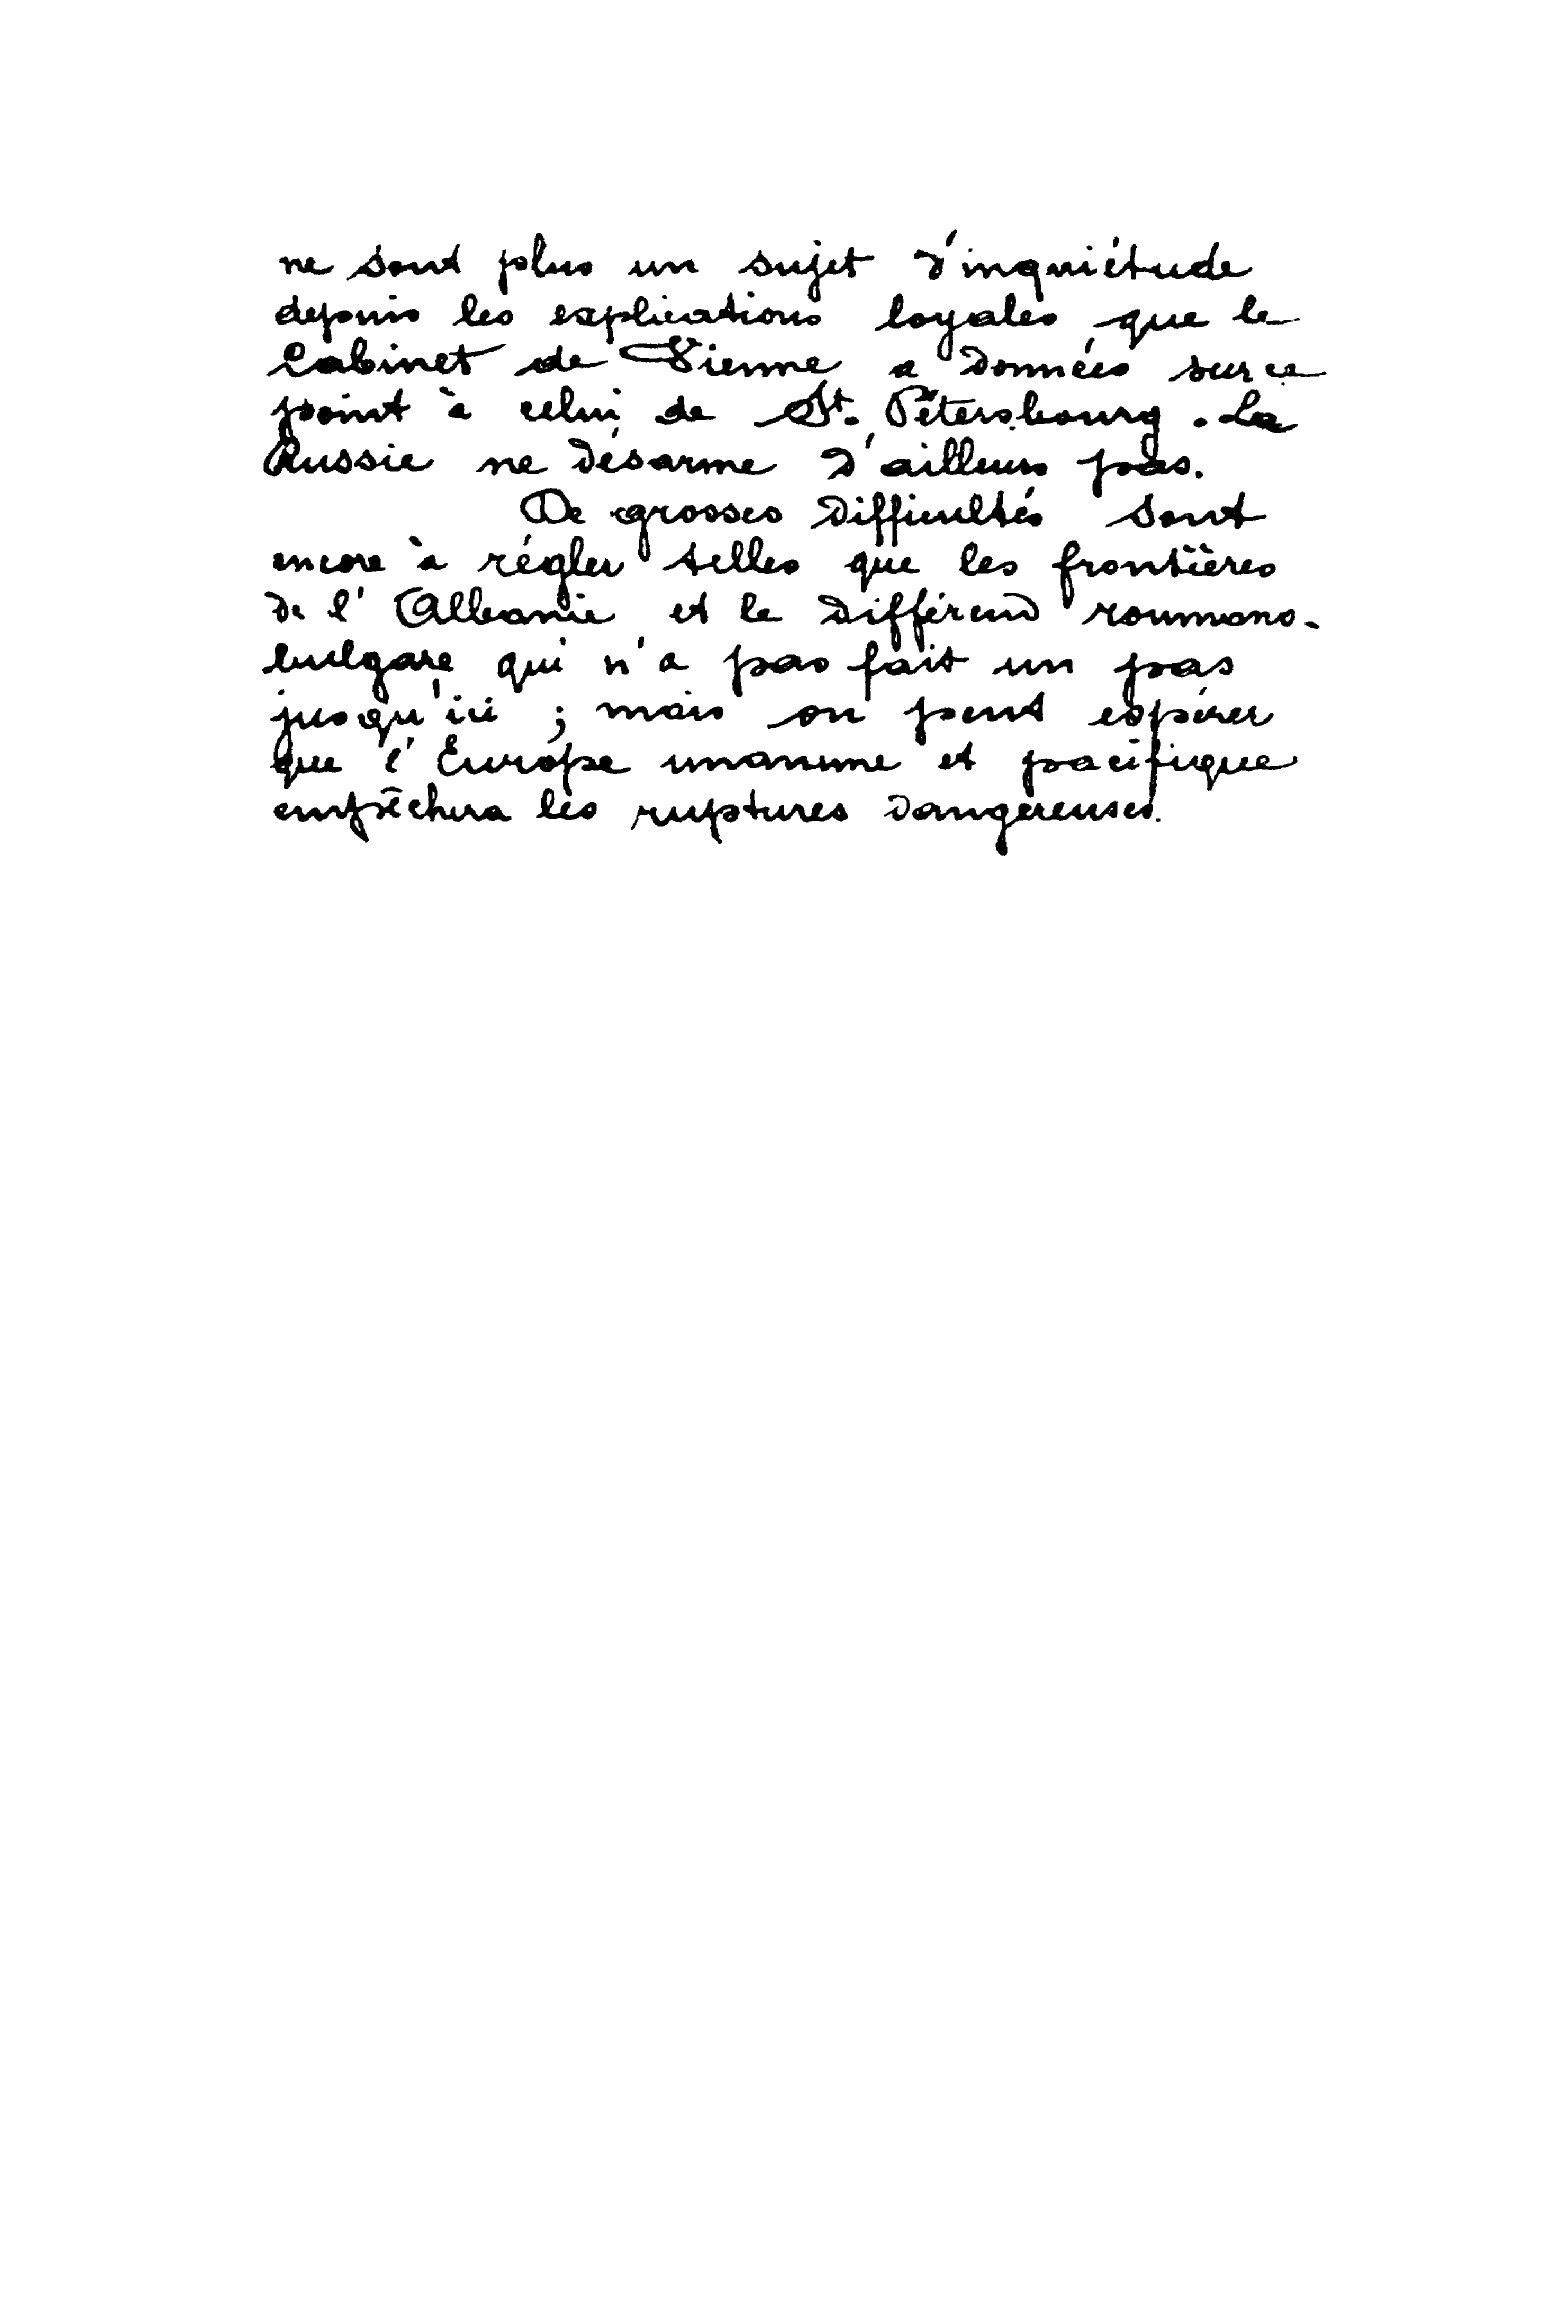 ne sont plus un sujet d'inquiétude
depuis les explications loyales que le
Cabinet de Vienne a données sur ce
point à celui de St. Pétersbourg. La
Russie ne désarme d'ailleurs pas.
De grosses difficultés sont
encore à régler telles que les frontières
de l'Albanie et le différend roumano-
bulgare qui n'a pas fait un pas
jusqu'ici ; mais on peut espérer
que l'Europe unanime et pacifique
empêchera les ruptures dangereuses.